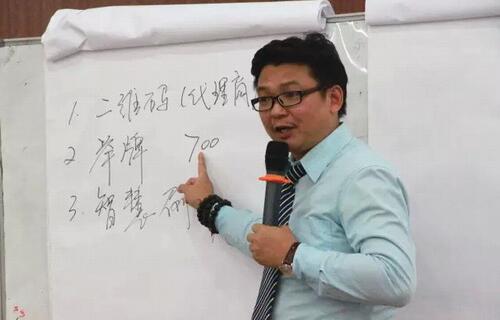 1. 二维码 (代理商
2 举牌 700
3. 智慧